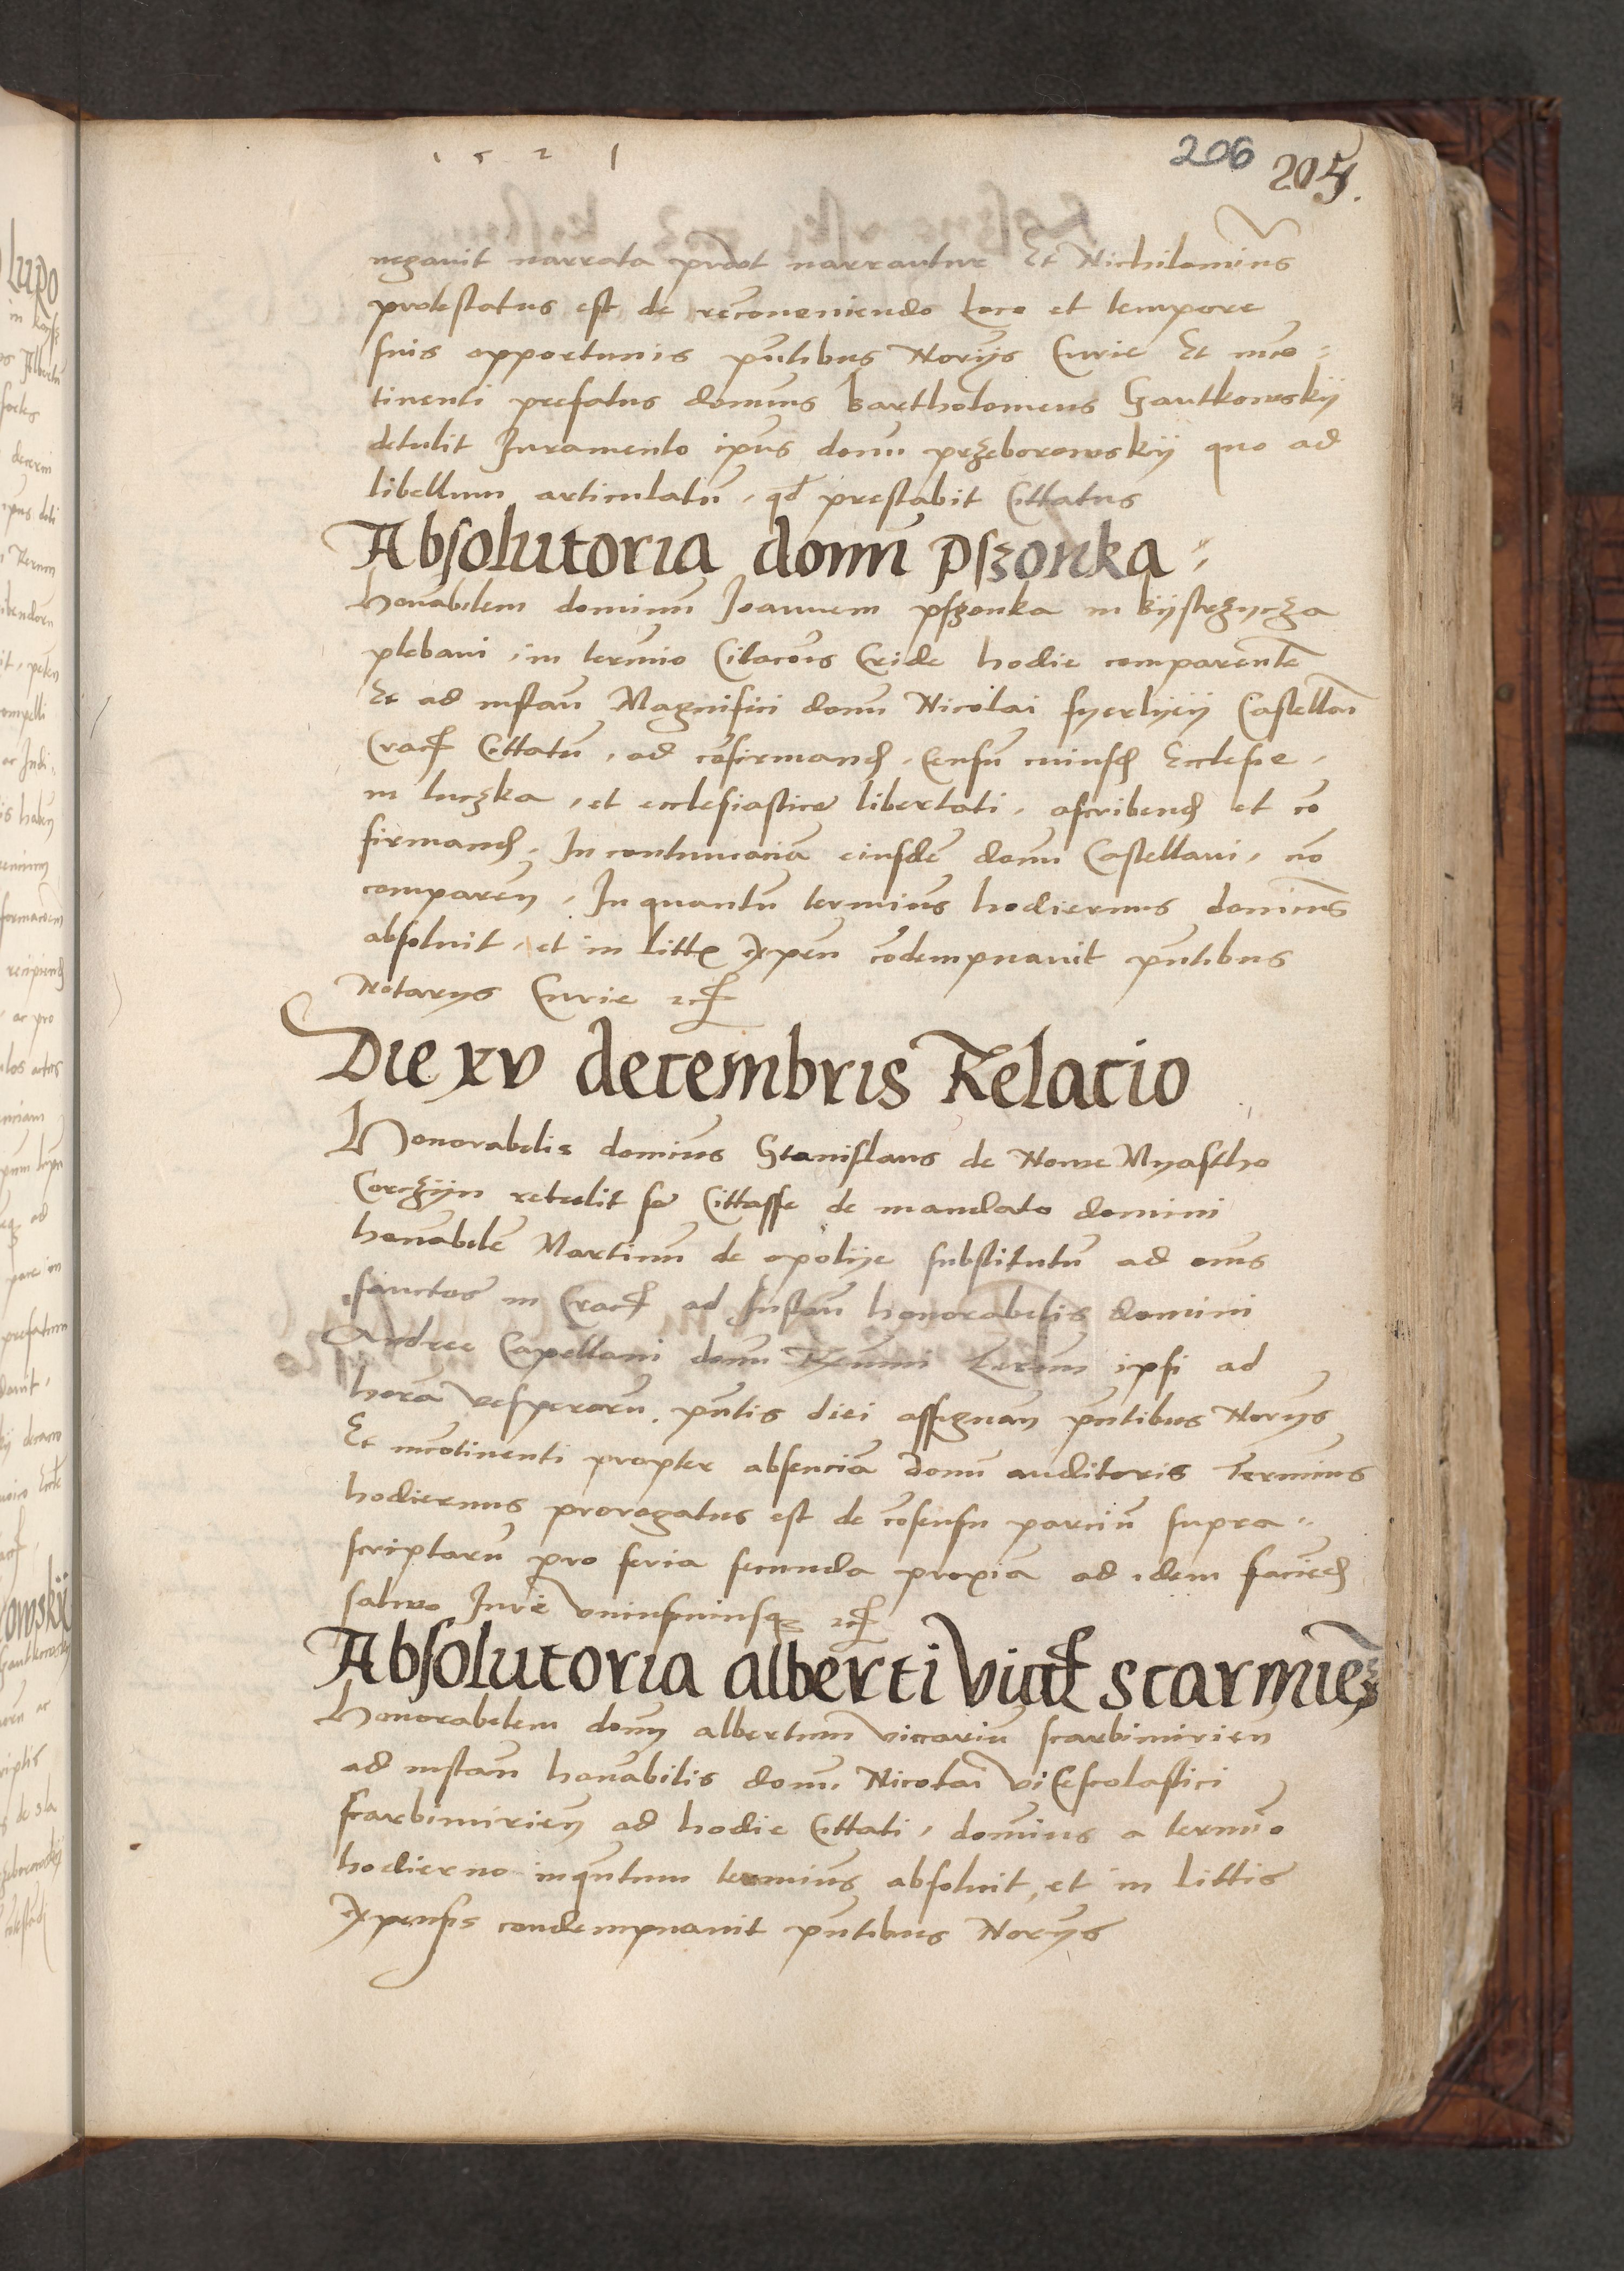 1521
206 205.
negavit narrata prout narrantur Et Nichilominus
protestatus est de reconveniendo Loco et tempore
suis opportunis pntibus Norijs Curie Et inco-
tinenti prefatus domins Bartholomeus Gautkowskij
detulit Juramento ipius domi przeborowskij quo ad
libellum articulatu, qd prestabit Cittatus
Absolutoria domi pszonka
honabilem dominu Joannem pszonka in Bijstrzycza
plebani, in termio Citacois Cride hodie comparente
Et ad instan Magnifici domi Nicolai syerlijeij Castellani
Crac Cittatu, ad cofirmand, Censu cuiusd Ecclesie,
in luczka, et ecclesiastice libertati, ascribend et co
firmand, In contumacia eiusde domi Castellani, no
comparen, In quantu termius hodiernus dominus
absoluit, et in litt expen codempnavit pntibus
Notarijs Curie etc
Die xv decembris Relacio
Honorabilis domius Stanislaus de Nowe Myastho
Corczijn retulit se Cittasse de mandato domini
honabile Martinu de opolije substitutu ad oms
sanctos in Crac ad Instan honorabilis domini
Andree Capellani domi ipsi ad
hora vesperoru pntis diei assignan pntibus Norijs
Et incotinenti propter absencia domi auditoris Termius
hodiernus prorogatus est de cosensu parciu supra-
scriptaru pro feria secunda proxia ad idem faciend
salvo Jure uniuscuiusq etc
Absolutoria alberti vica scarmiez
Honorabilem dom albertum viccariu scarbimirien
ad instan honabilis domi Nicolai viCescolastici
scarbimirien ad hodie Cittati, domius a termio
hodierno inquntum termius absoluit, et in littis
Expensis condempnavit pntibus Norijs